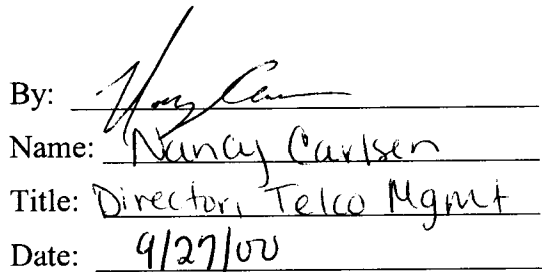 By:
Name: Nancy Carlsen
Title: Director, Telco Mgmt
Date: 9/27/00